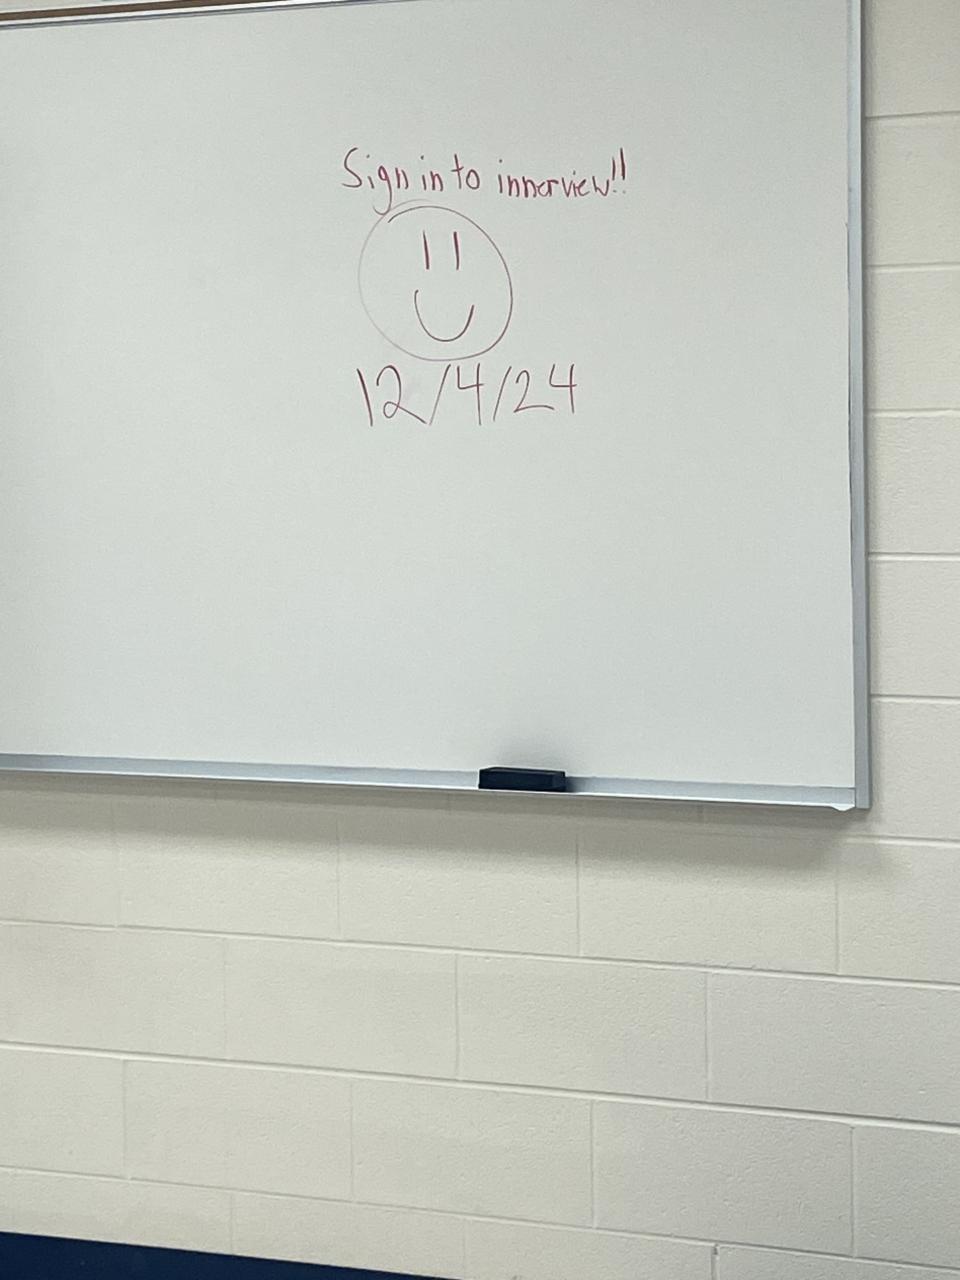 Sign in to innerview!!
12/4/24